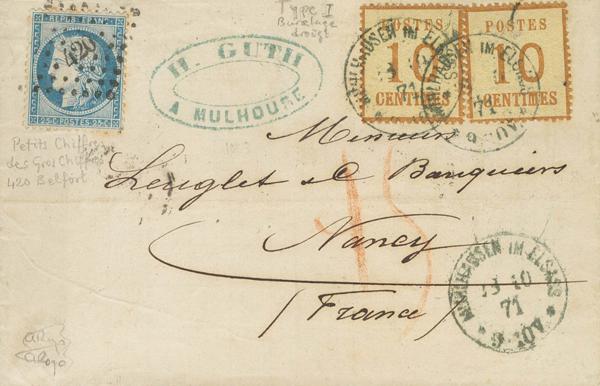 REPUB. FRANC.
420
25 C. POSTES 25 C.
Type I
Burelage
droit
H. GUTH
A MULHOUSE
POSTES
10
CENTIMES
POSTES
10
CENTIMES
MÜLHAUSEN IM ELSASS
71
MÜLHAUSEN IM ELSASS
71
Petits Chiffres
des Gros Chiffres
420 Belfort
Messieurs
Lenglet & C Banquiers
Nancy
(France)
15
MÜLHAUSEN IM ELSASS
13 10
71